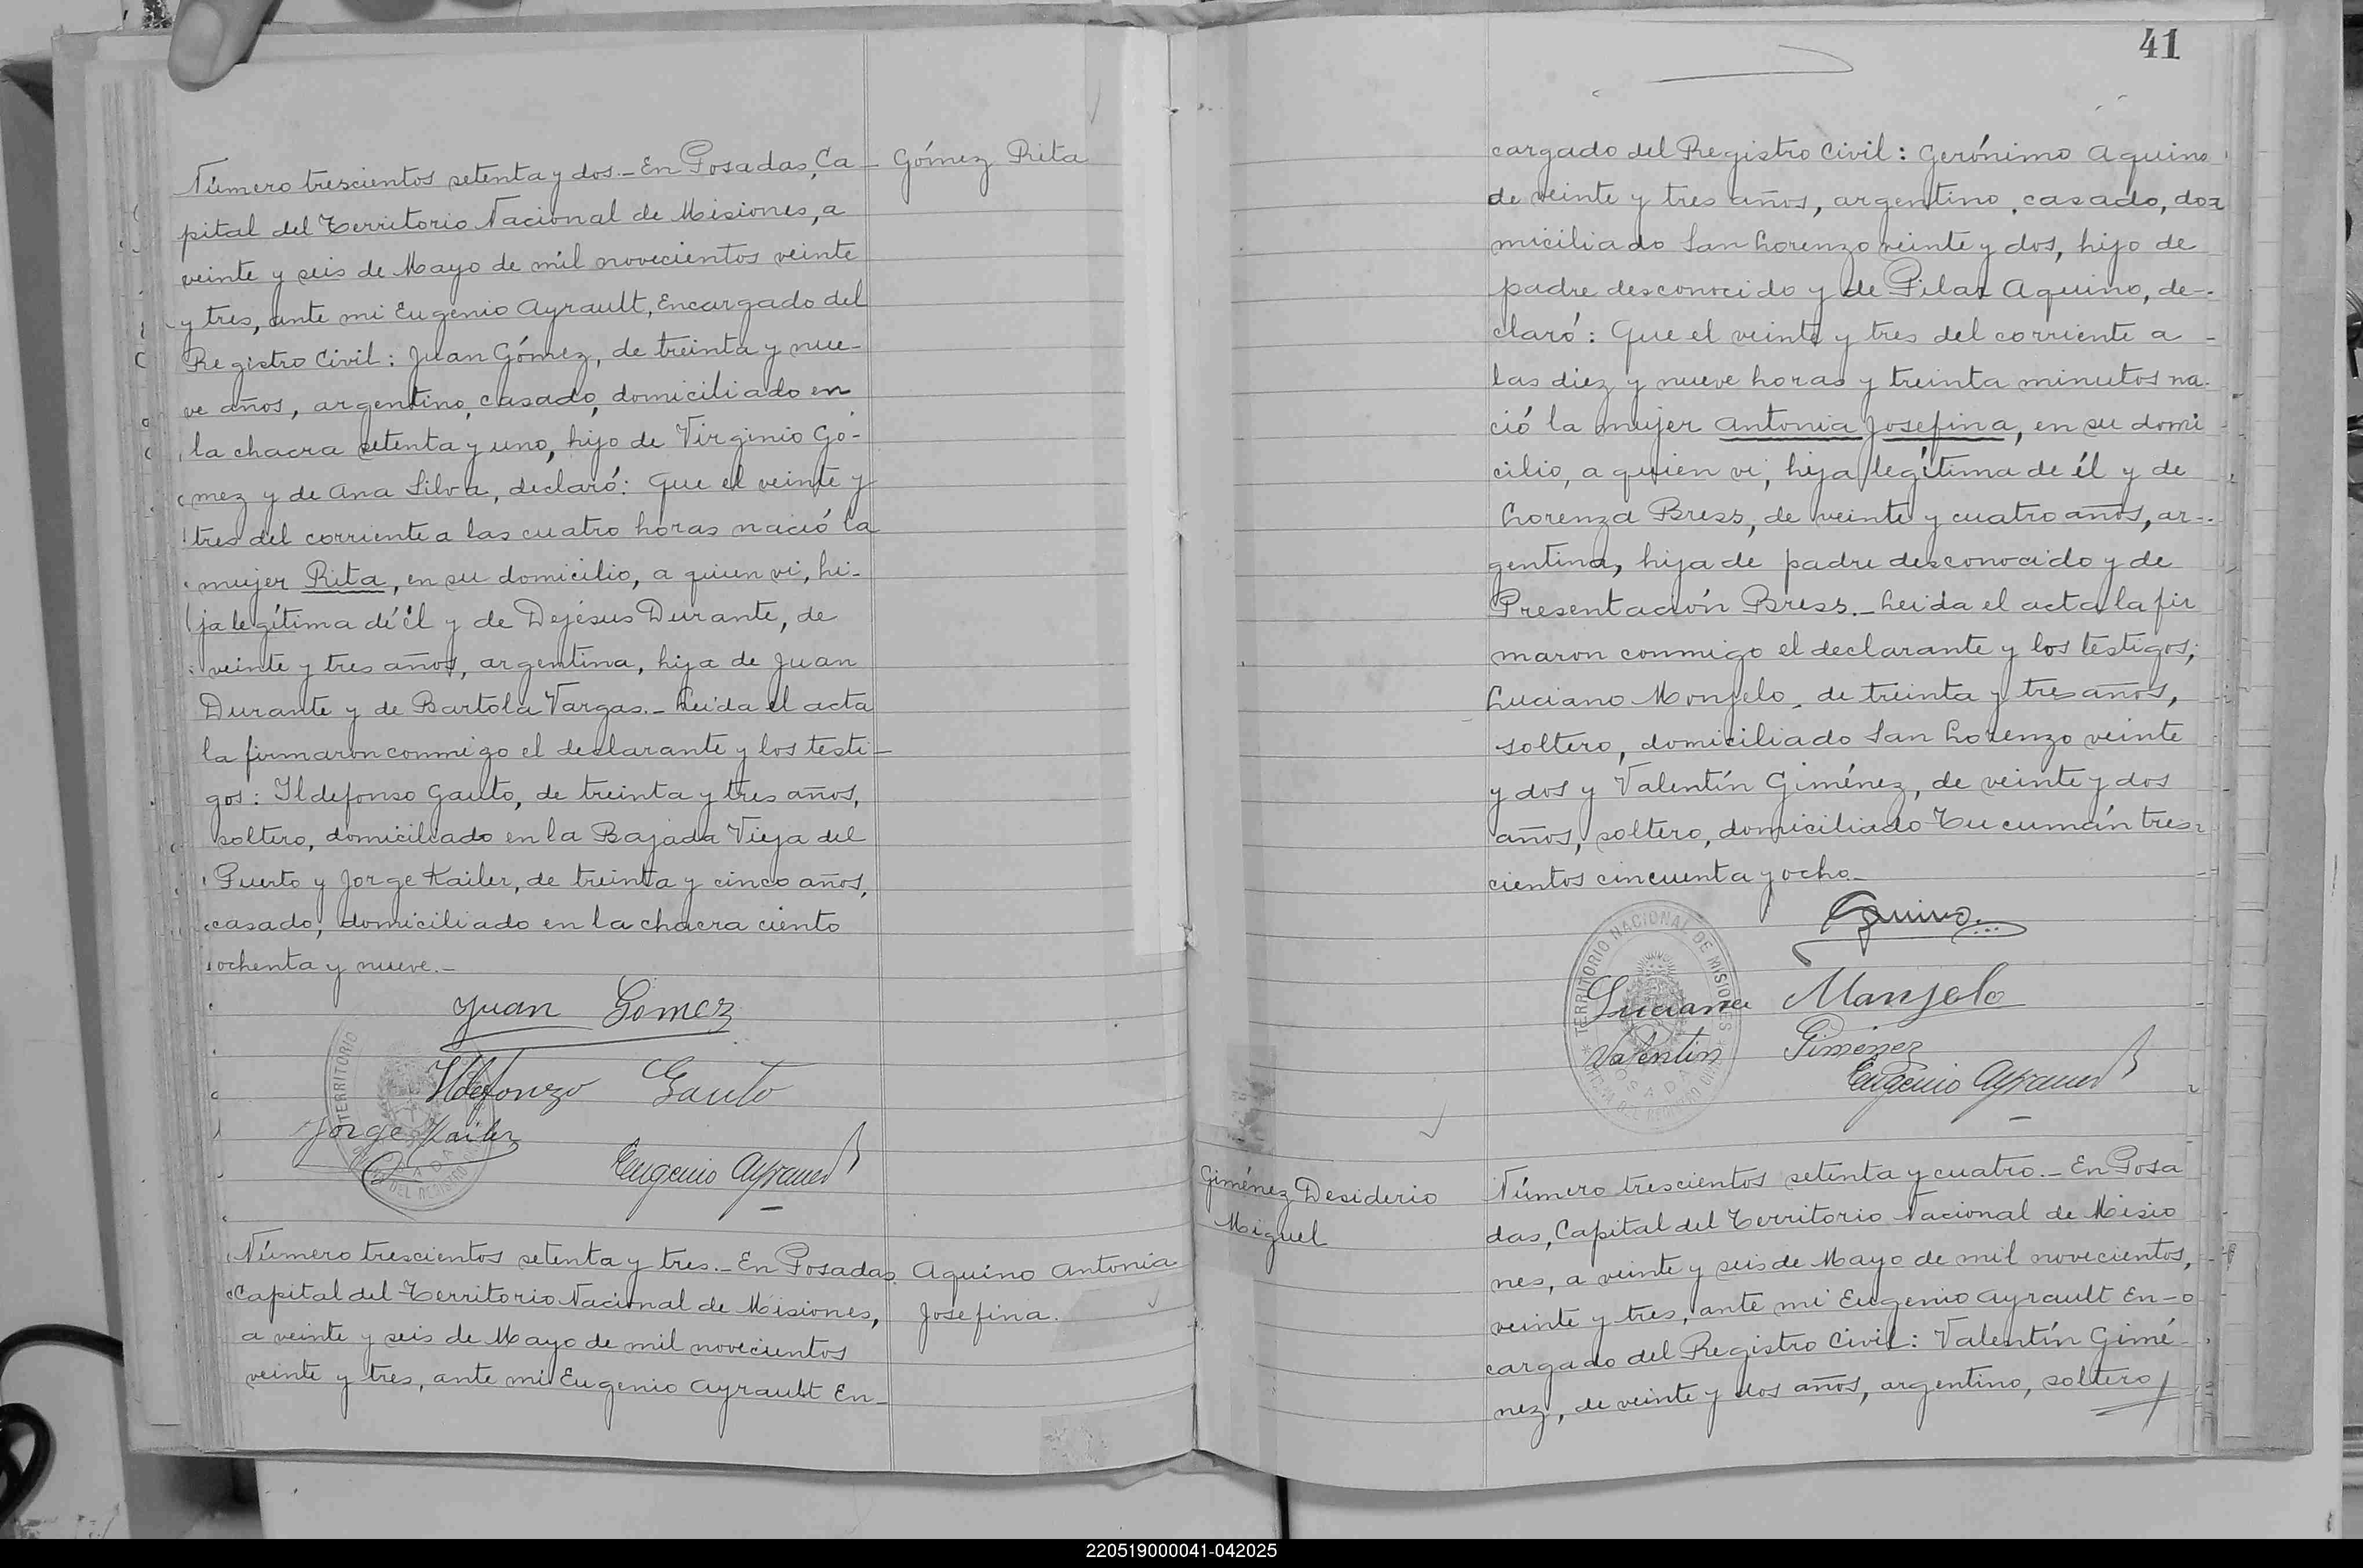 Número trescientos setenta y dos.- En Posadas, Ca-
Gómez Rita
pital del Territorio Nacional de Misiones, a
veinte y seis de Mayo de mil novecientos veinte
y tres, ante mi Eugenio Ayrault, Encargado del
Registro Civil: Juan Gómez, de treinta y nue-
ve años, argentino, casado, domiciliado en
la chacra setenta y uno, hijo de Virginio Gó-
mez y de Ana Silva, declaró: Que el veinte y
tres del corriente a las cuatro horas nació la
mujer Rita, en su domicilio, a quien vi, hi-
ja legítima de él y de Dejesus Durante, de
veinte y tres años, argentina, hija de Juan
Durante y de Bartola Vargas.- Leida el acta
la firmaron conmigo el declarante y los testi-
gos: Ildefonso Gauto, de treinta y tres años,
soltero, domiciliado en la Bajada Vieja del
Puerto y Jorge Kailer, de treinta y cinco años,
casado, domiciliado en la chacra ciento
ochenta y nueve.-
Juan Gomez
Ildefonzo Gauto
Jorge Kailer
Eugenio Ayrault
Número trescientos setenta y tres.- En Posadas
Aquino Antonia
Josefina.
Capital del Territorio Nacional de Misiones,
a veinte y seis de Mayo de mil novecientos
veinte y tres, ante mi Eugenio Ayrault En-
41
cargado del Registro Civil: Gerónimo Aquino
de veinte y tres años, argentino, casado, do-
miciliado San Lorenzo veinte y dos, hijo de
padre desconocido y de Pilar Aquino, de-
claró: Que el veinte y tres del corriente a
las diez y nueve horas y treinta minutos na-
ció la mujer Antonia Josefina, en su domi
cilio, a quien vi, hija legítima de él y de
Lorenza Bress, de veinte y cuatro años, ar-
gentina, hija de padre desconocido y de
Presentación Bress.- Leida el acta la fir
maron conmigo el declarante y los testigos;
Luciano Monjelo, de treinta y tres años,
soltero, domiciliado San Lorenzo veinte
y dos y Valentín Giménez, de veinte y dos
años, soltero, domiciliado Tucumán tres-
cientos cincuenta y ocho.-
Aquino
TERRITORIO NACIONAL DE MISIONES
Luciano Monjelo
Valentin Gimenez
Eugenio Ayrault
Giménez Desiderio
Miguel
Número trescientos setenta y cuatro.- En Posa
das, Capital del Territorio Nacional de Misio
nes, a veinte y seis de Mayo de mil novecientos,
veinte y tres, ante mi Eugenio Ayrault En-
cargado del Registro Civil: Valentín Gimé-
nez, de veinte y dos años, argentino, soltero
220519000041-042025